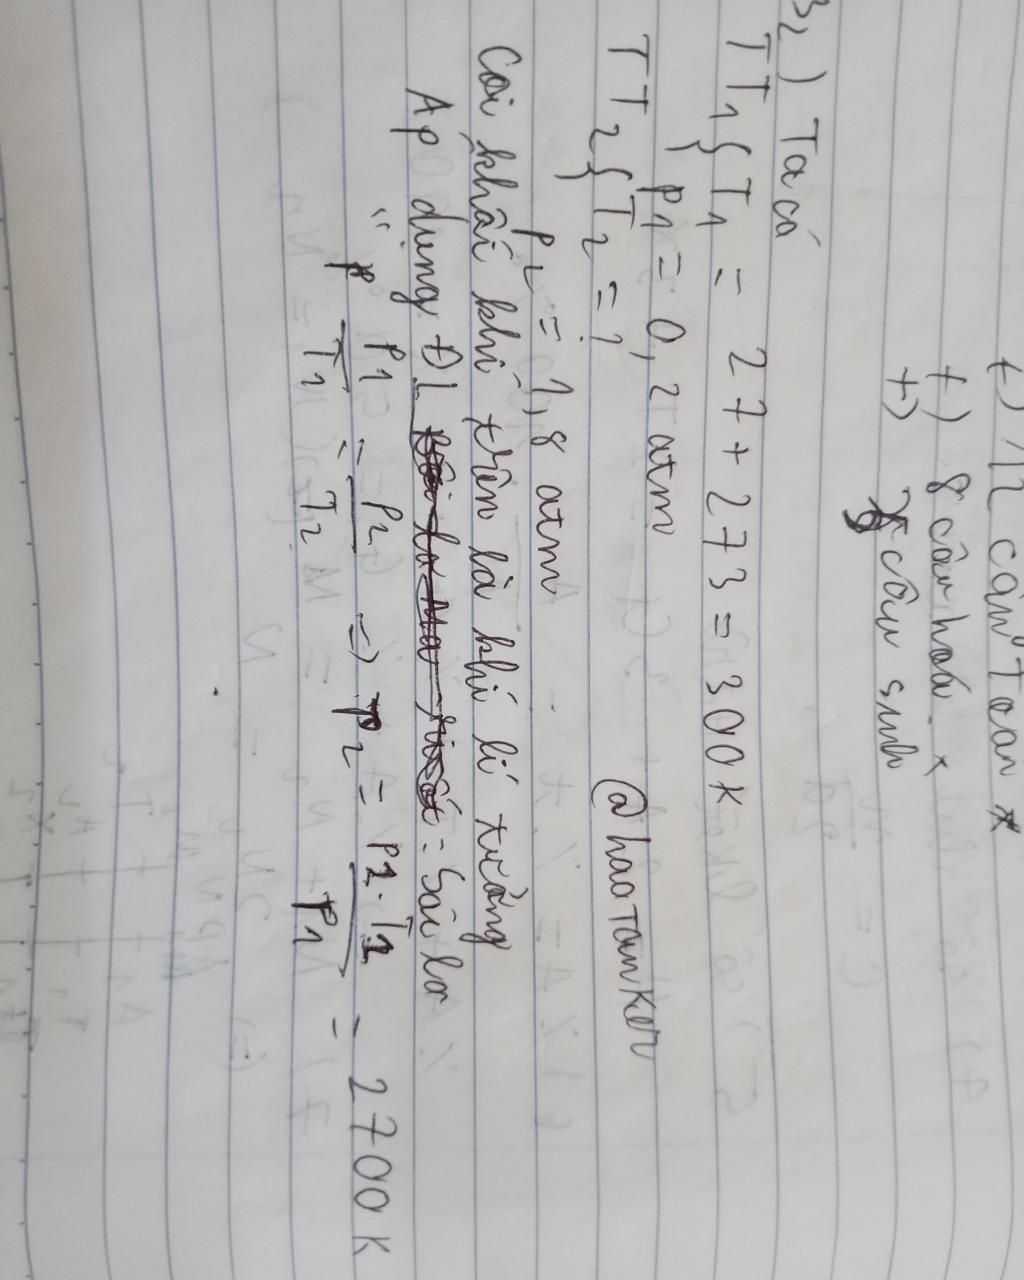 +) 12 câu Toán x
+) 8 câu hoá x
+) 8 câu sinh
32) Ta có
TT1 { T1 = 27 + 273 = 300 K
p1 = 0,2 atm
TT2 { T2 = ?
@haotanker
p2 = 1,8 atm
Coi khối khí trên là khí lí tưởng
Ap dụng ĐL : Sác lơ
" p1/T1 = p2/T2 => T2 = p2.T1/p1 = 2700 K